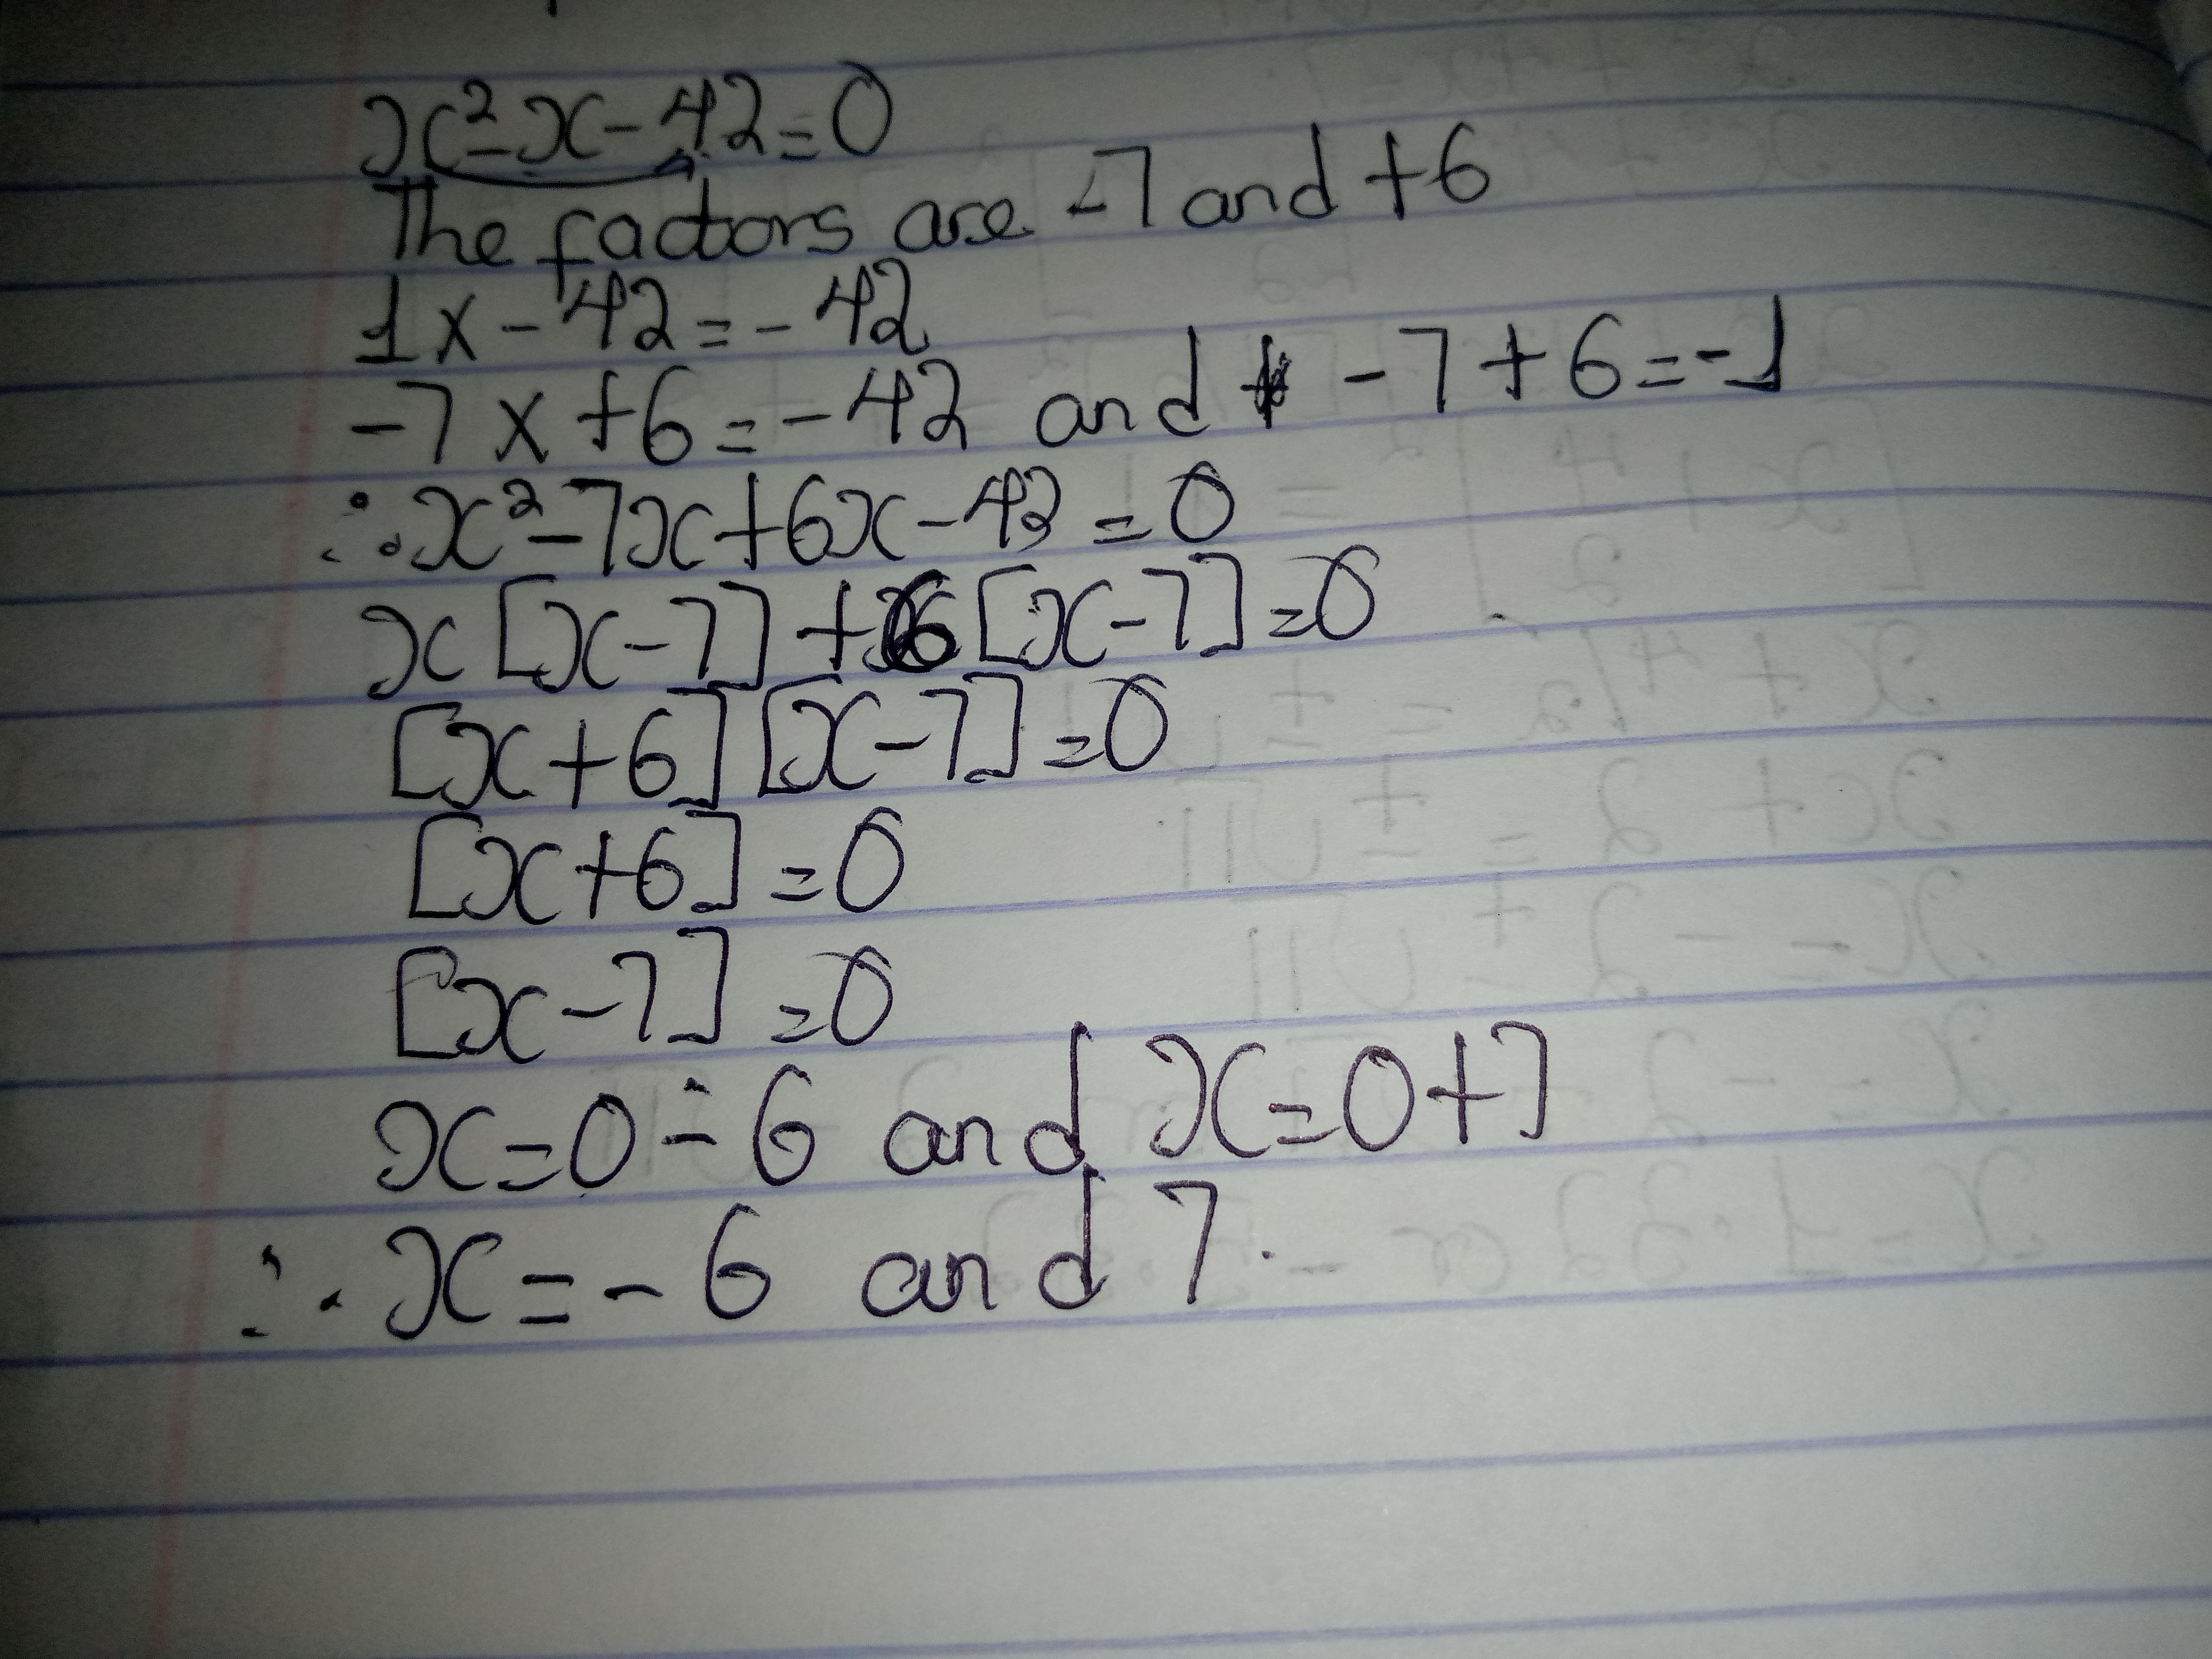 x²-x-42=0
The factors are -7 and +6
1x-42=-42
-7x+6=-42 and -7+6=-1
∴x²-7x+6x-42=0
x[x-7]+6[x-7]=0
[x+6][x-7]=0
[x+6]=0
[x-7]=0
x=0-6 and x=0+7
∴x=-6 and 7.